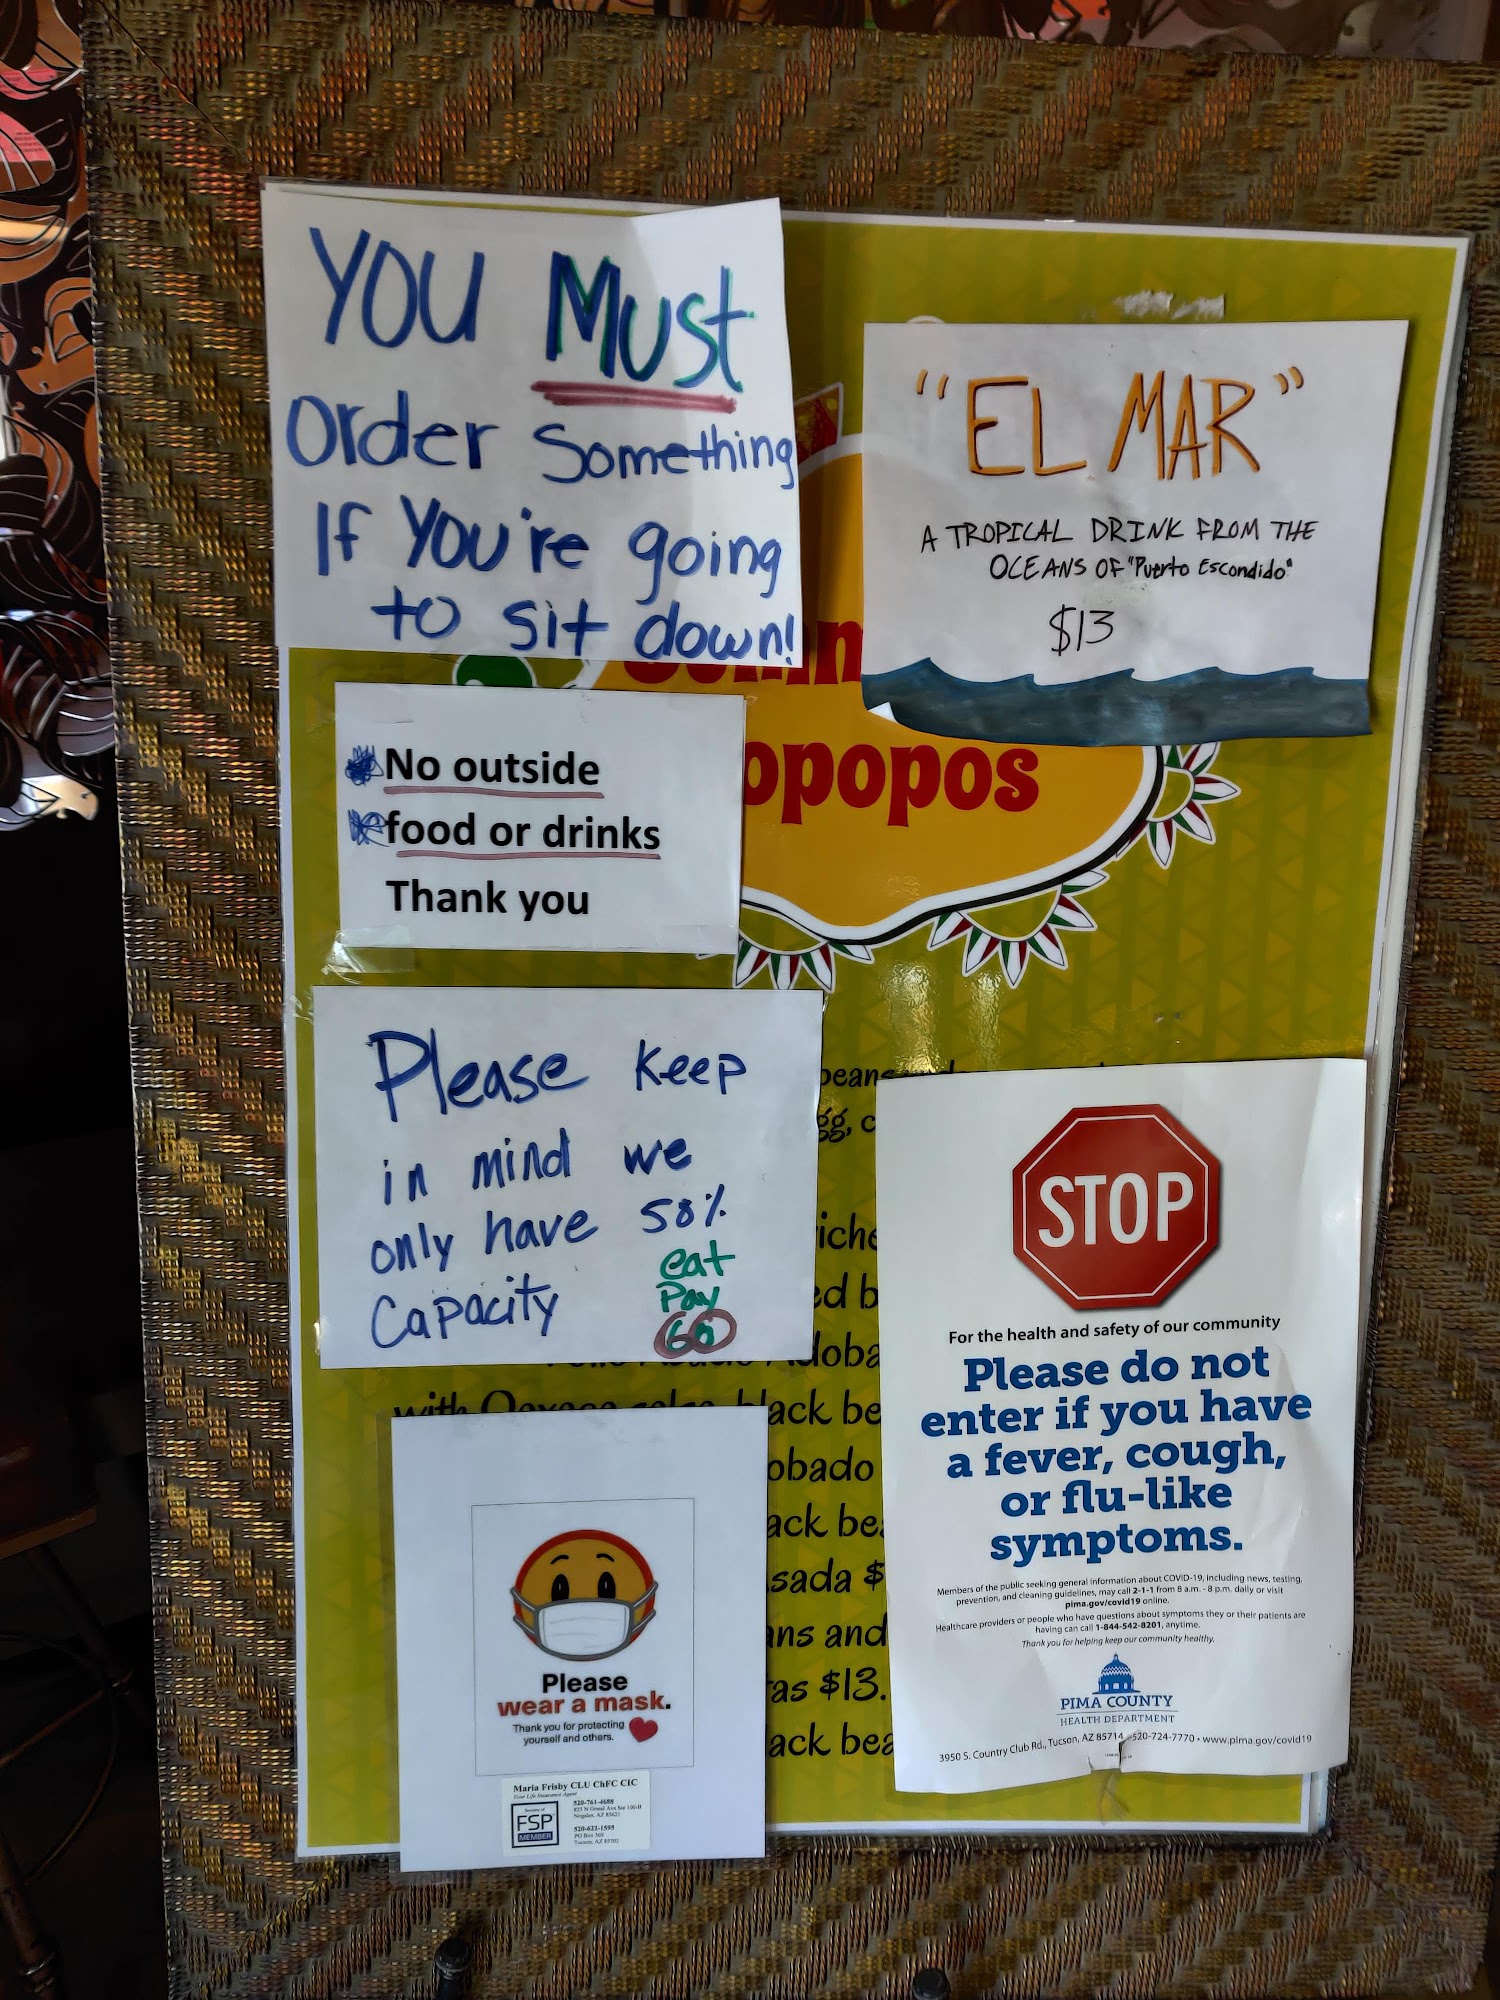 YOU Must
Order Something
If You're going
to sit down!
"EL MAR"
A TROPICAL DRINK FROM THE
OCEANS OF "Puerto Escondido"
$13
opopos
No outside
food or drinks
Thank you
Please keep
in mind we
only have 50%
Capacity
eat
Pay
GO
beans
gg, c
iche
ed b
doba
with Oaxaca salsa, black be
obado
ack bea
sada $
ans and
as $13.
ack bea
Please
wear a mask.
Thank you for protecting
yourself and others.
Maria Frisby CLU ChFC CIC
Your Life Insurance Agent
520-761-4688
825 N Grand Ave Ste 100-B
Nogales, AZ 85621
520-622-1595
PO Box 369
Tucson, AZ 85702
Society of
FSP
MEMBER
STOP
For the health and safety of our community
Please do not
enter if you have
a fever, cough,
or flu-like
symptoms.
Members of the public seeking general information about COVID-19, including news, testing,
prevention, and cleaning guidelines, may call 2-1-1 from 8 a.m. - 8 p.m. daily or visit
pima.gov/covid19 online.
Healthcare providers or people who have questions about symptoms they or their patients are
having can call 1-844-542-8201, anytime.
Thank you for helping keep our community healthy.
PIMA COUNTY
HEALTH DEPARTMENT
3950 S. Country Club Rd., Tucson, AZ 85714 520-724-7770 • www.pima.gov/covid19